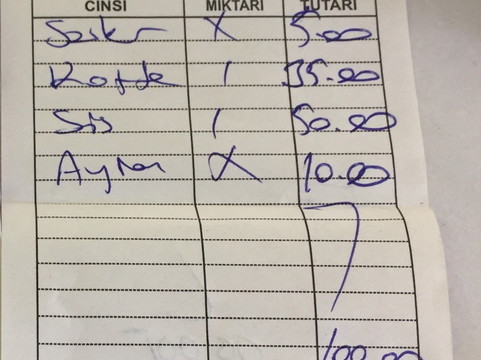 CİNSİ MİKTARI TUTARI
X 5.00
Köfte 1 35.00
Şiş 1 50.00
Ayran X 10.00
100.00